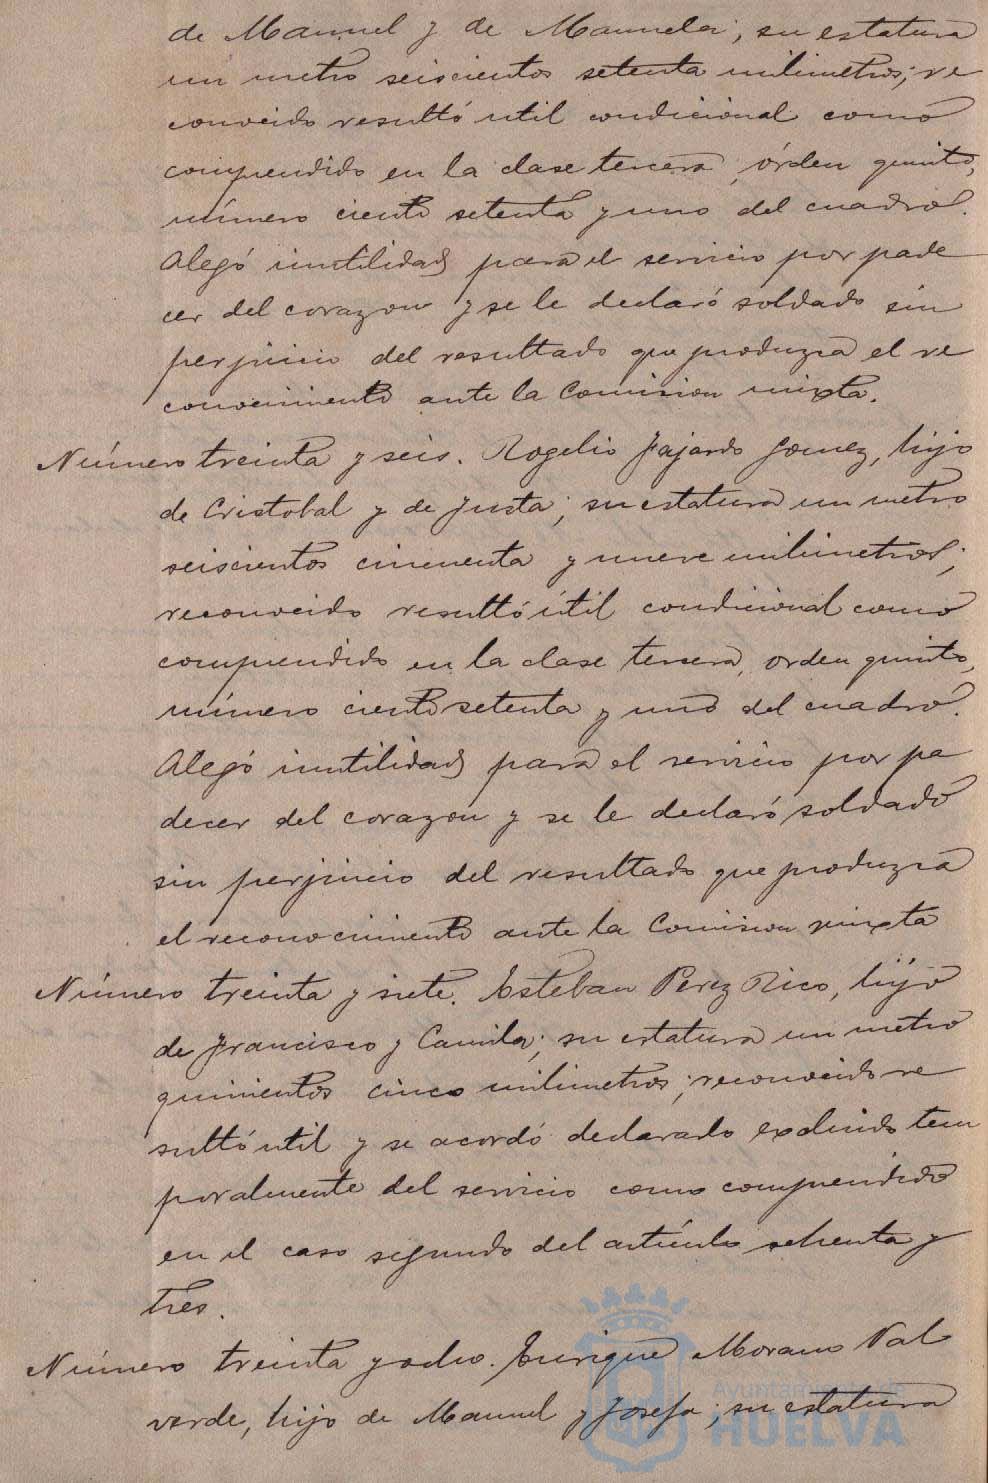 de Manuel y de Manuela; su estatura
un metro seiscientos setenta milimetros; re
conocido resultó util condicional como
comprendido en la clase tercera, órden quinto,
número ciento setenta y uno del cuadro.
Alegó inutilidad para el servicio por pade
cer del corazon y se le declaró soldado sin
perjuicio del resultado que produzca el re
conocimiento ante la Comision mixta.
Número treinta y seis. Rogelio Fajardo Gomez, hijo
de Cristobal y de Justa; su estatura un metro
seiscientos cincuenta y nueve milimetros;
reconocido resultó útil condicional como
comprendido en la clase tercera, orden quinto,
número ciento setenta y uno del cuadro.
Alegó inutilidad para el servicio por pa
decer del corazon y se le declaró soldado
sin perjuicio del resultado que produzca
el reconocimiento ante la Comision mixta
Número treinta y siete. Esteban Perez Rico, hijo
de Francisco y Camila; su estatura un metro
quinientos cinco milimetros; reconocido re
sultó util y se acordó declararlo excluido tem
poralmente del servicio como comprendido
en el caso segundo del artículo ochenta y
tres.
Número treinta y ocho. Enrique Morano Val
verde, hijo de Manuel y Josefa; su estatura
Ayuntamiento de
HUELVA